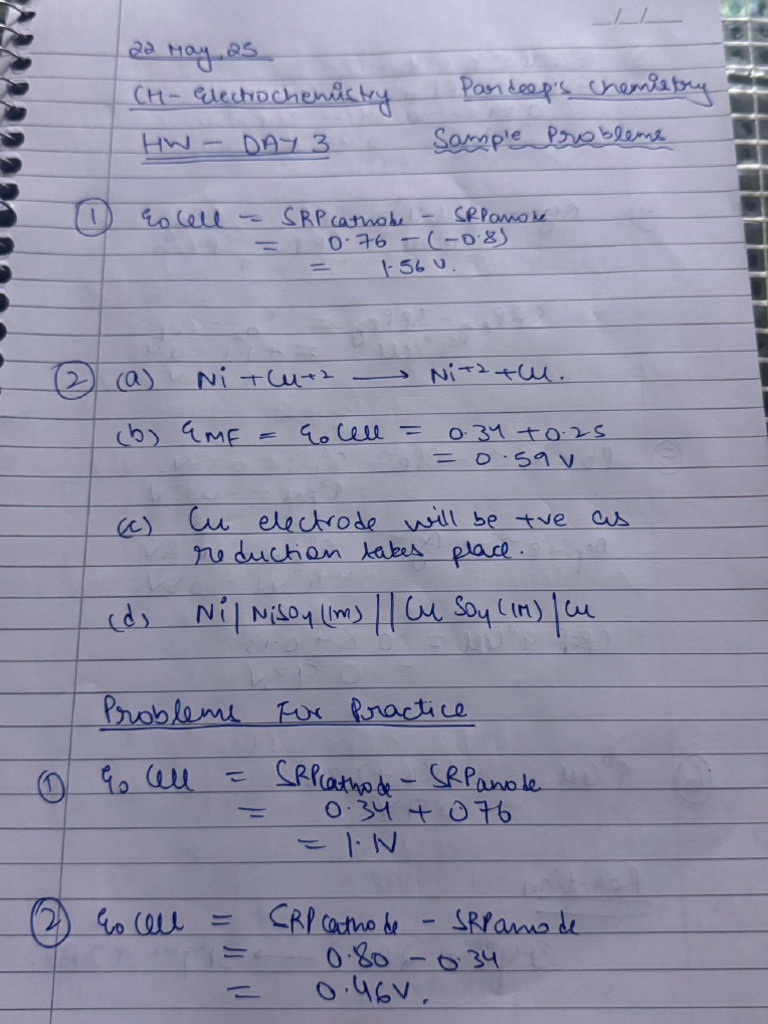 22 May, 25
CH- Electrochemistry Pardeep's Chemistry
HW - DAY 3 Sample Problems
① E0 Cell = SRP cathode - SRP anode
= 0.76 - (-0.8)
= 1.56 V.
② (a) Ni + Cu+2 → Ni+2 + Cu.
(b) EMF = E0 Cell = 0.34 + 0.25
= 0.59 V
(c) Cu electrode will be +ve as
reduction takes place.
(d) Ni | NiSO4 (1M) || Cu SO4 (1M) | Cu
Problems For Practice
① E0 Cell = SRP cathode - SRP anode
= 0.34 + 076
= 1.1V
② E0 Cell = SRP cathode - SRP anode
= 0.80 - 0.34
= 0.46V.